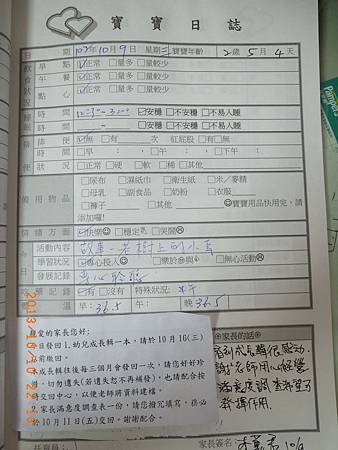 寶寶日誌
日期 102年10月9日 星期三 寶寶年齡 2歲5月4天
飲食狀況 早點 ☑正常 □量多 □量較少
午餐 ☑正常 □量多 □量較少
點心 ☑正常 □量多 □量較少
睡眠 時間 ☑安穩 □不安穩 □不易入睡
時間 □安穩 □不安穩 □不易入睡
排便 排便 ☑無 □有 次 紅屁股 □有 □無
時間 □早: □午: □下午:
便狀況 □正常 □硬 □軟 □稀 □其他
備用物品 □尿布 □濕紙巾 □衛生紙 □米/麥精
□母乳 □副食品 □奶粉 □衣服
□褲子 □其他 ☺寶寶用品快用完,請
添加囉!
情緒方面 ☑快樂☺ □穩定 □哭鬧☹
活動內容 故事-老樹上的小鳥
學習狀況 ☑專心投入 □樂於參與 □無心活動
發展記錄 專心聆聽
☑有 □沒有 特殊狀況:
溫 早:36.5 午: 晚36.5
親愛的家長您好:
今日發回1.幼兒成長輯一本,請於10月16(三)
前繳回。
成長輯往後每三個月會發回一次,請您好好珍
惜,切勿遺失(若遺失恕不再補發),也請配合按
時交回中心,以便老師將資料建檔。
家長滿意度調查表一份,請您撥冗填寫,務必
於10月11日(五)交回。謝謝配合。
家長的話
家長簽名: 10/9
2013/10/10 22:1
Pampers